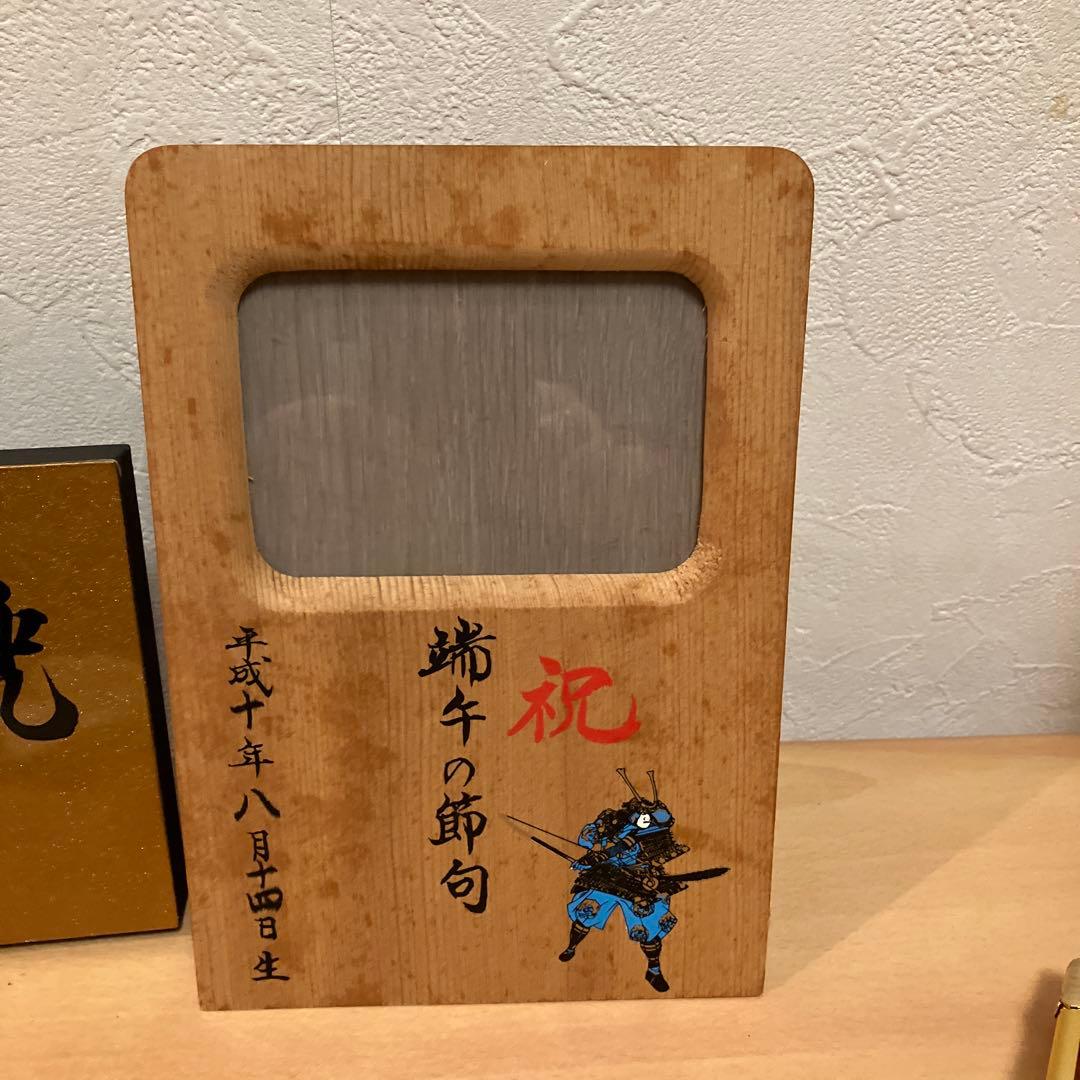 祝
端午の節句
平成十年八月十四日生